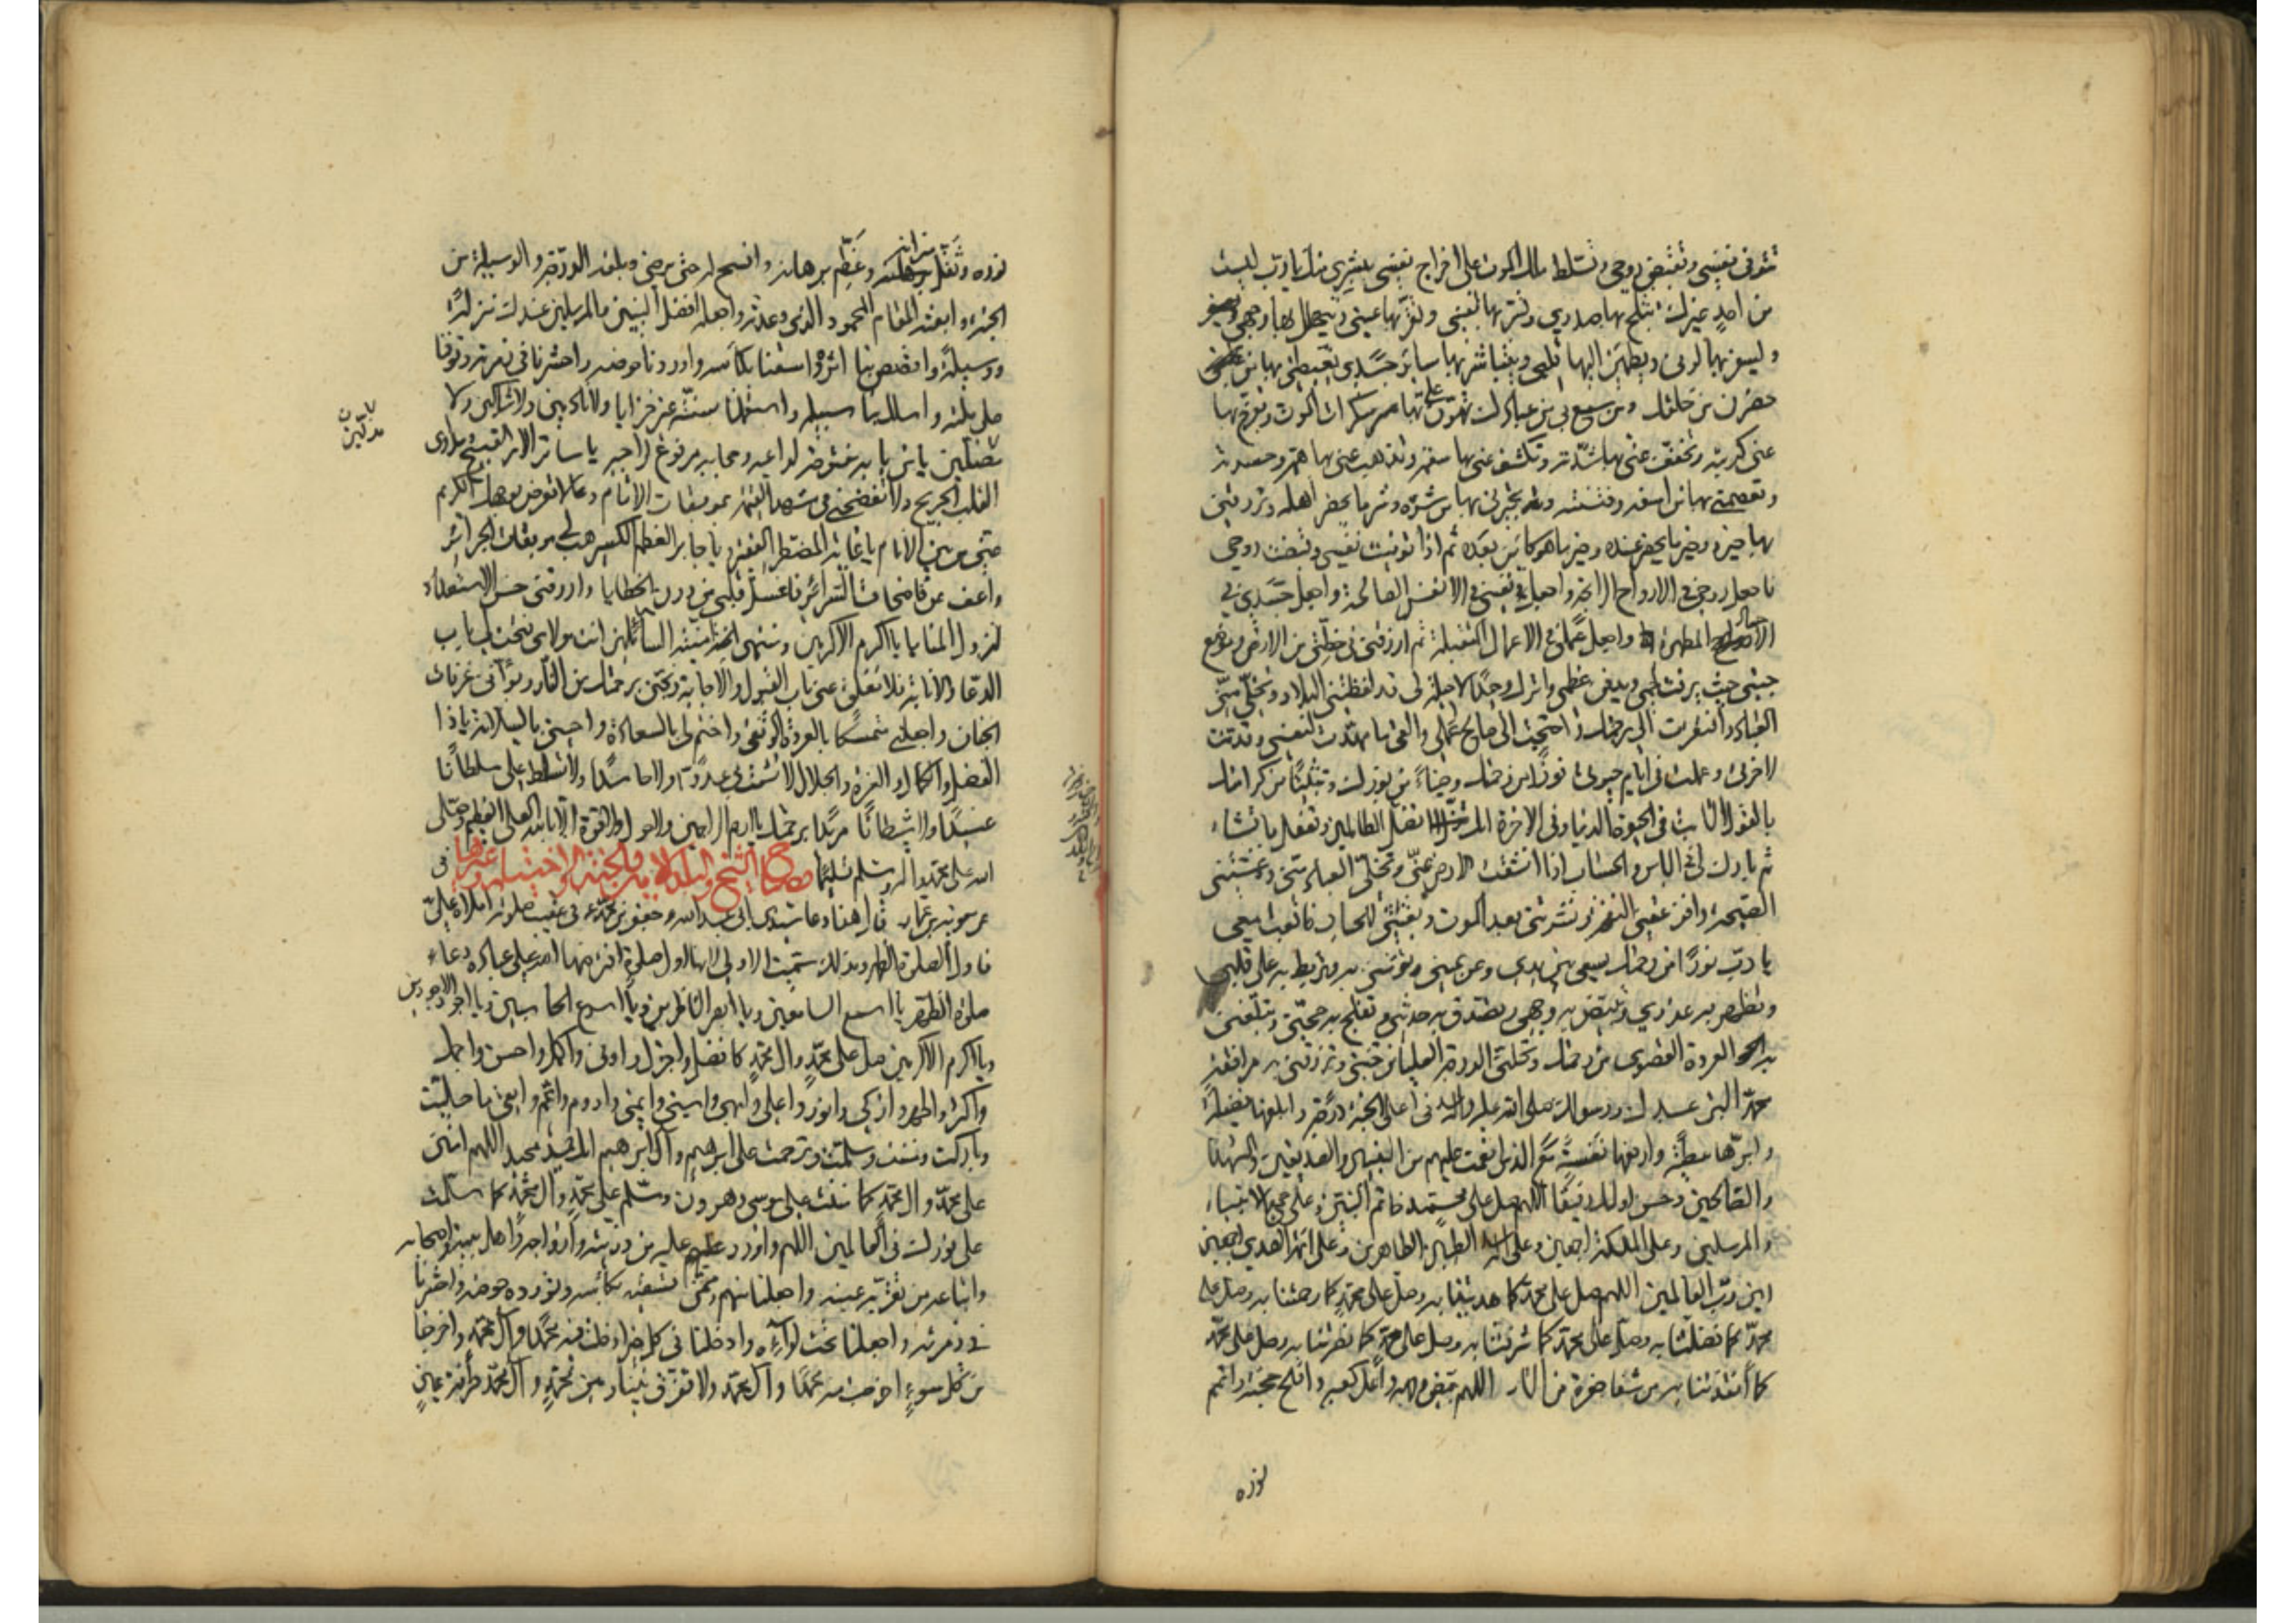 تتوفى نفسي وتقبض روحي وتسلط ملك الموت على اخراج نفسي ببشرى منك يا رب ليست
من احد غيرك تثلج بها صدري وتسر بها نفسي وتقر بها عيني ويتهلل بها وجهي
ويسفر بها لوني ويطمئن اليها قلبي ويتباشر بها ساير جسدي يغبطني بها من
حضرني من خلقك ومن سمع بي من عبادك تهون علي بها سكرات الموت وتفرج بها
عني كربته وتخفف عني بها شدته وتكشف عني بها سقمه وتذهب عني بها همه وحسرته
وتعصمني بها من اسفه وفتنته وتجيرني بها من شره وشر ما يحضر اهله وترزقني
بها خيره وخير ما يحضر عنده وخير ما هو كائن بعده ثم اذا توفيت نفسي وقبضت روحي
فاجعل روحي في الارواح الرابحة واجعل نفسي في الانفس الصالحة واجعل جسدي في
الاجساد المطهرة واجعل عملي في الاعمال المتقبلة ثم ارزقني في خطتي من الارض وموضع
جنبي حيث يرفت لحمي ويدفن عظمي واترك وحيدا لا حيلة لي قد لفظتني البلاد وتخلى مني
العباد وافتقرت الى رحمتك واحتجت الى صالح عملي والقى ما مهدت لنفسي وقدمت
لاخرتي وعملت في ايام حيوتي فوزا من رحمتك وضياء من نورك وتثبيتا من كرامتك
بالقول الثابت في الحيوة الدنيا وفي الاخرة انك تضل الظالمين وتفعل ما تشاء
ثم بارك لي في البعث والحساب اذا انشقت الارض عني وتخلى العباد مني وغشيتني
الصيحة وافزعتني النفخة ونشرتني بعد الموت وبعثتني للحساب فابعث معي
يا رب نورا من رحمتك يسعى بين يدي وعن يميني تؤمنني به وتربط به على قلبي
وتظهر به عذري وتبيض به وجهي وتصدق به حديثي وتفلج به حجتي وتبلغني
به العروة القصوى من رحمتك وتحلني الدرجة العليا من جنتك وترزقني به مرافقة
محمد النبي عبدك ورسولك صلى الله عليه واله في اعلى الجنة درجة وابلغها فضيلة
وابرها عطية وارفعها نفسة مع الذين انعمت عليهم من النبيين والصديقين والشهداء
والصالحين وحسن اولئك رفيقا اللهم صل على محمد خاتم النبيين وعلى جميع الانبياء
والمرسلين وعلى الملئكة اجمعين وعلى اله الطيبين الطاهرين وعلى ائمة الهدى اجمعين
امين رب العالمين اللهم صل على محمد كما هديتنا به وصل على محمد كما رحمتنا به وصل على
محمد كما فضلتنا به وصل على محمد كما شرفتنا به وصل على محمد كما نصرتنا به وصل على محمد
كما انقذتنا به من شفا حفرة من النار اللهم بيض وجهه واعل كعبه وافلج حجته واتمم
نوره
نوره وثقل ميزانه وعظم برهانه وافسح له حتى يرضى وبلغه الدرجة والوسيلة من
الجنة وابعثه المقام المحمود الذي وعدته واجعله افضل النبيين والمرسلين عندك منزلة
ووسيلة واقصص بنا اثره واسقنا بكاسه واوردنا حوضه واحشرنا في زمرته وتوفنا
على ملته واسلك بنا سبيله واستعملنا بسنته غير خزايا ولا نادمين ولا شاكين ولا
مبدلين
مضلين يا من بابه مفتوح لداعيه وحجابه مرفوع لراجيه يا ساتر الامر القبيح ومداوي
القلب الجريح ولا تفضحني في مشهد القيمة بموبقات الاثام ولا تعرض بوجهك الكريم
عني من بين الانام يا غاية المضطر الفقير ويا جابر العظم الكسير هب لي موبقات الجرائر
واعف عن فاضحات السرائر فاغسل قلبي من درن الخطايا وارزقني حسن الاستعداد
لنزول المنايا يا اكرم الاكرمين ومنتهى امنية السائلين انت مولاي فتحت لي باب
الدعاء والانابة فلا تغلق عني باب القبول والاجابة ونجني برحمتك من النار وبوئني غرفات
الجنان واجعلني متمسكا بالعروة الوثقى واختم لي بالسعادة واحيني بالسلامة يا ذا
الفضل والكمال والعزة والجلال لا تشمت بي عدوا ولا حاسدا ولا تسلط علي سلطانا
عنيدا ولا شيطانا مريدا برحمتك يا ارحم الراحمين ولا حول ولا قوة الا بالله العلي العظيم وصلى
الله على محمد واله وسلم تسليما مصباح الشيخ والبلد الامين والجنة والاختيار وغيرها
عن معوية بن عمار قال هذا دعاء سيدي ابي عبد الله جعفر بن محمد ع في عقيب صلوته املاه علي
فاول الصلوة الظهر وبذلك سميت الاولى لانها اول صلوة افترضها الله على عباده دعاء
صلوة الظهر يا اسمع السامعين ويا ابصر الناظرين ويا اسرع الحاسبين ويا اجود الاجودين
ويا اكرم الاكرمين صل على محمد وال محمد كافضل واجزل واوفى واكمل واحسن واجمل
واكثر واطهر وازكى وانور واعلى وابهى واسنى وانمى وادوم واعم وابقى ما صليت
وباركت ومننت وسلمت وترحمت على ابرهيم وال ابرهيم انك حميد مجيد اللهم امنن
على محمد وال محمد كما مننت على موسى وهرون وسلم على محمد وال محمد كما سلمت
على نوح في العالمين اللهم واورد عليه من ذريته وازواجه واهل بيته واصحابه
واتباعه من تقر به عينه واجعلنا منهم وممن تسقيه بكاسه وتورده حوضه واحشرنا
في زمرته واجعلنا تحت لوائه وادخلنا في كل خير ادخلت فيه محمدا وال محمد واخرجنا
من كل سوء اخرجت منه محمدا وال محمد ولا تفرق بيننا وبين محمد وال محمد طرفة عين